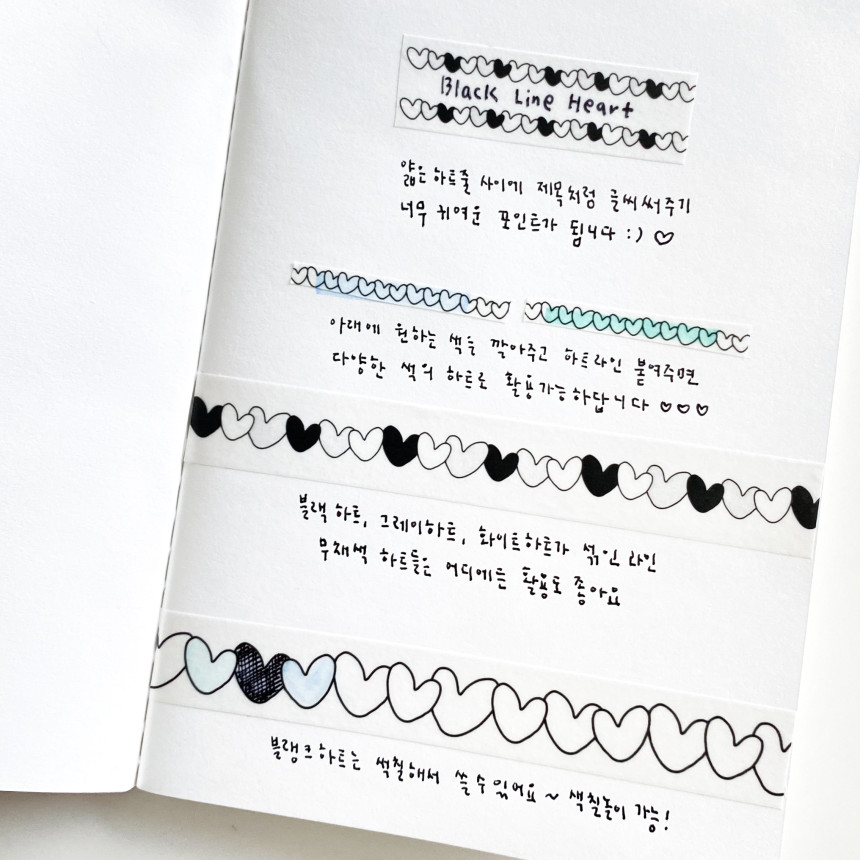 Black Line Heart
얇은 하트줄 사이에 제목처럼 글씨써주기
너무 귀여운 포인트가 됩니다 :) ♡
아래에 원하는 색을 깔아주고 하트라인 붙여주면
다양한 색의 하트로 활용가능하답니다 ♡♡♡
블랙 하트, 그레이하트, 화이트하트가 섞인 라인
무채색 하트들은 어디에든 활용도 좋아요
블랭크하트는 색칠해서 쓸 수 있어요 ~ 색칠놀이 가능!